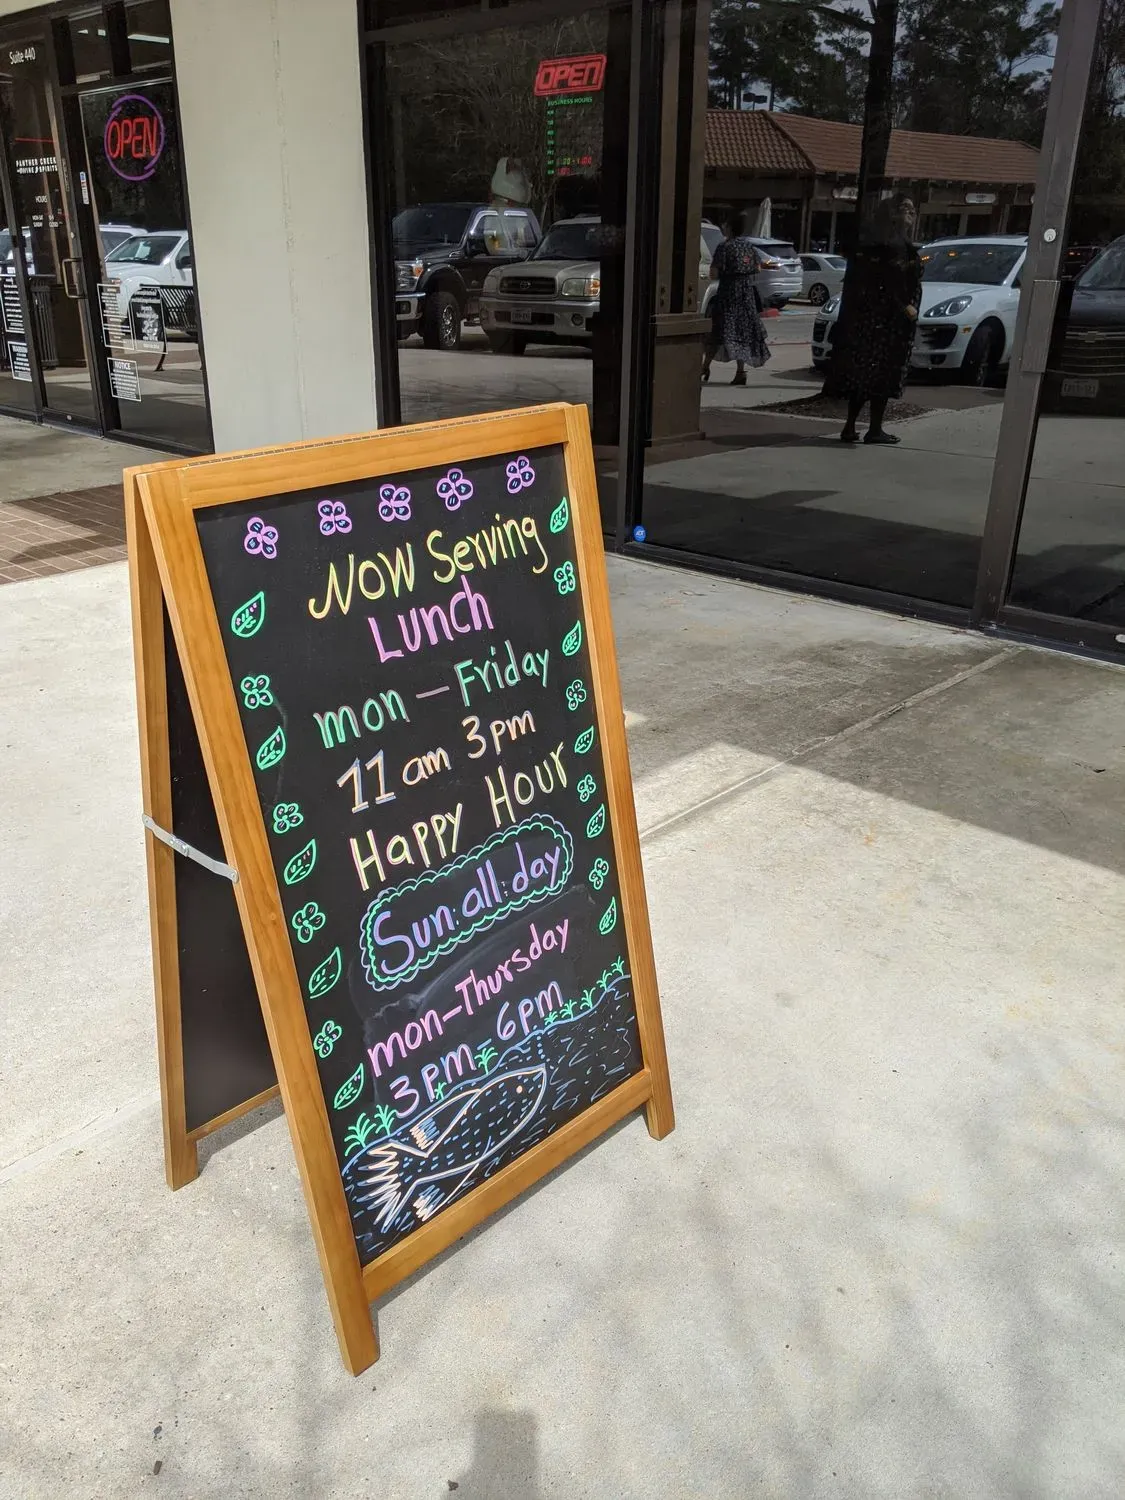 Suite 440
OPEN
PANTHER CREEK
WINE & SPIRITS
HOURS
NOTICE
OPEN
BUSINESS HOURS
Now Serving
Lunch
mon - Friday
11 am 3pm
Happy Hour
Sun: all: day
mon-Thursday
3pm - 6pm